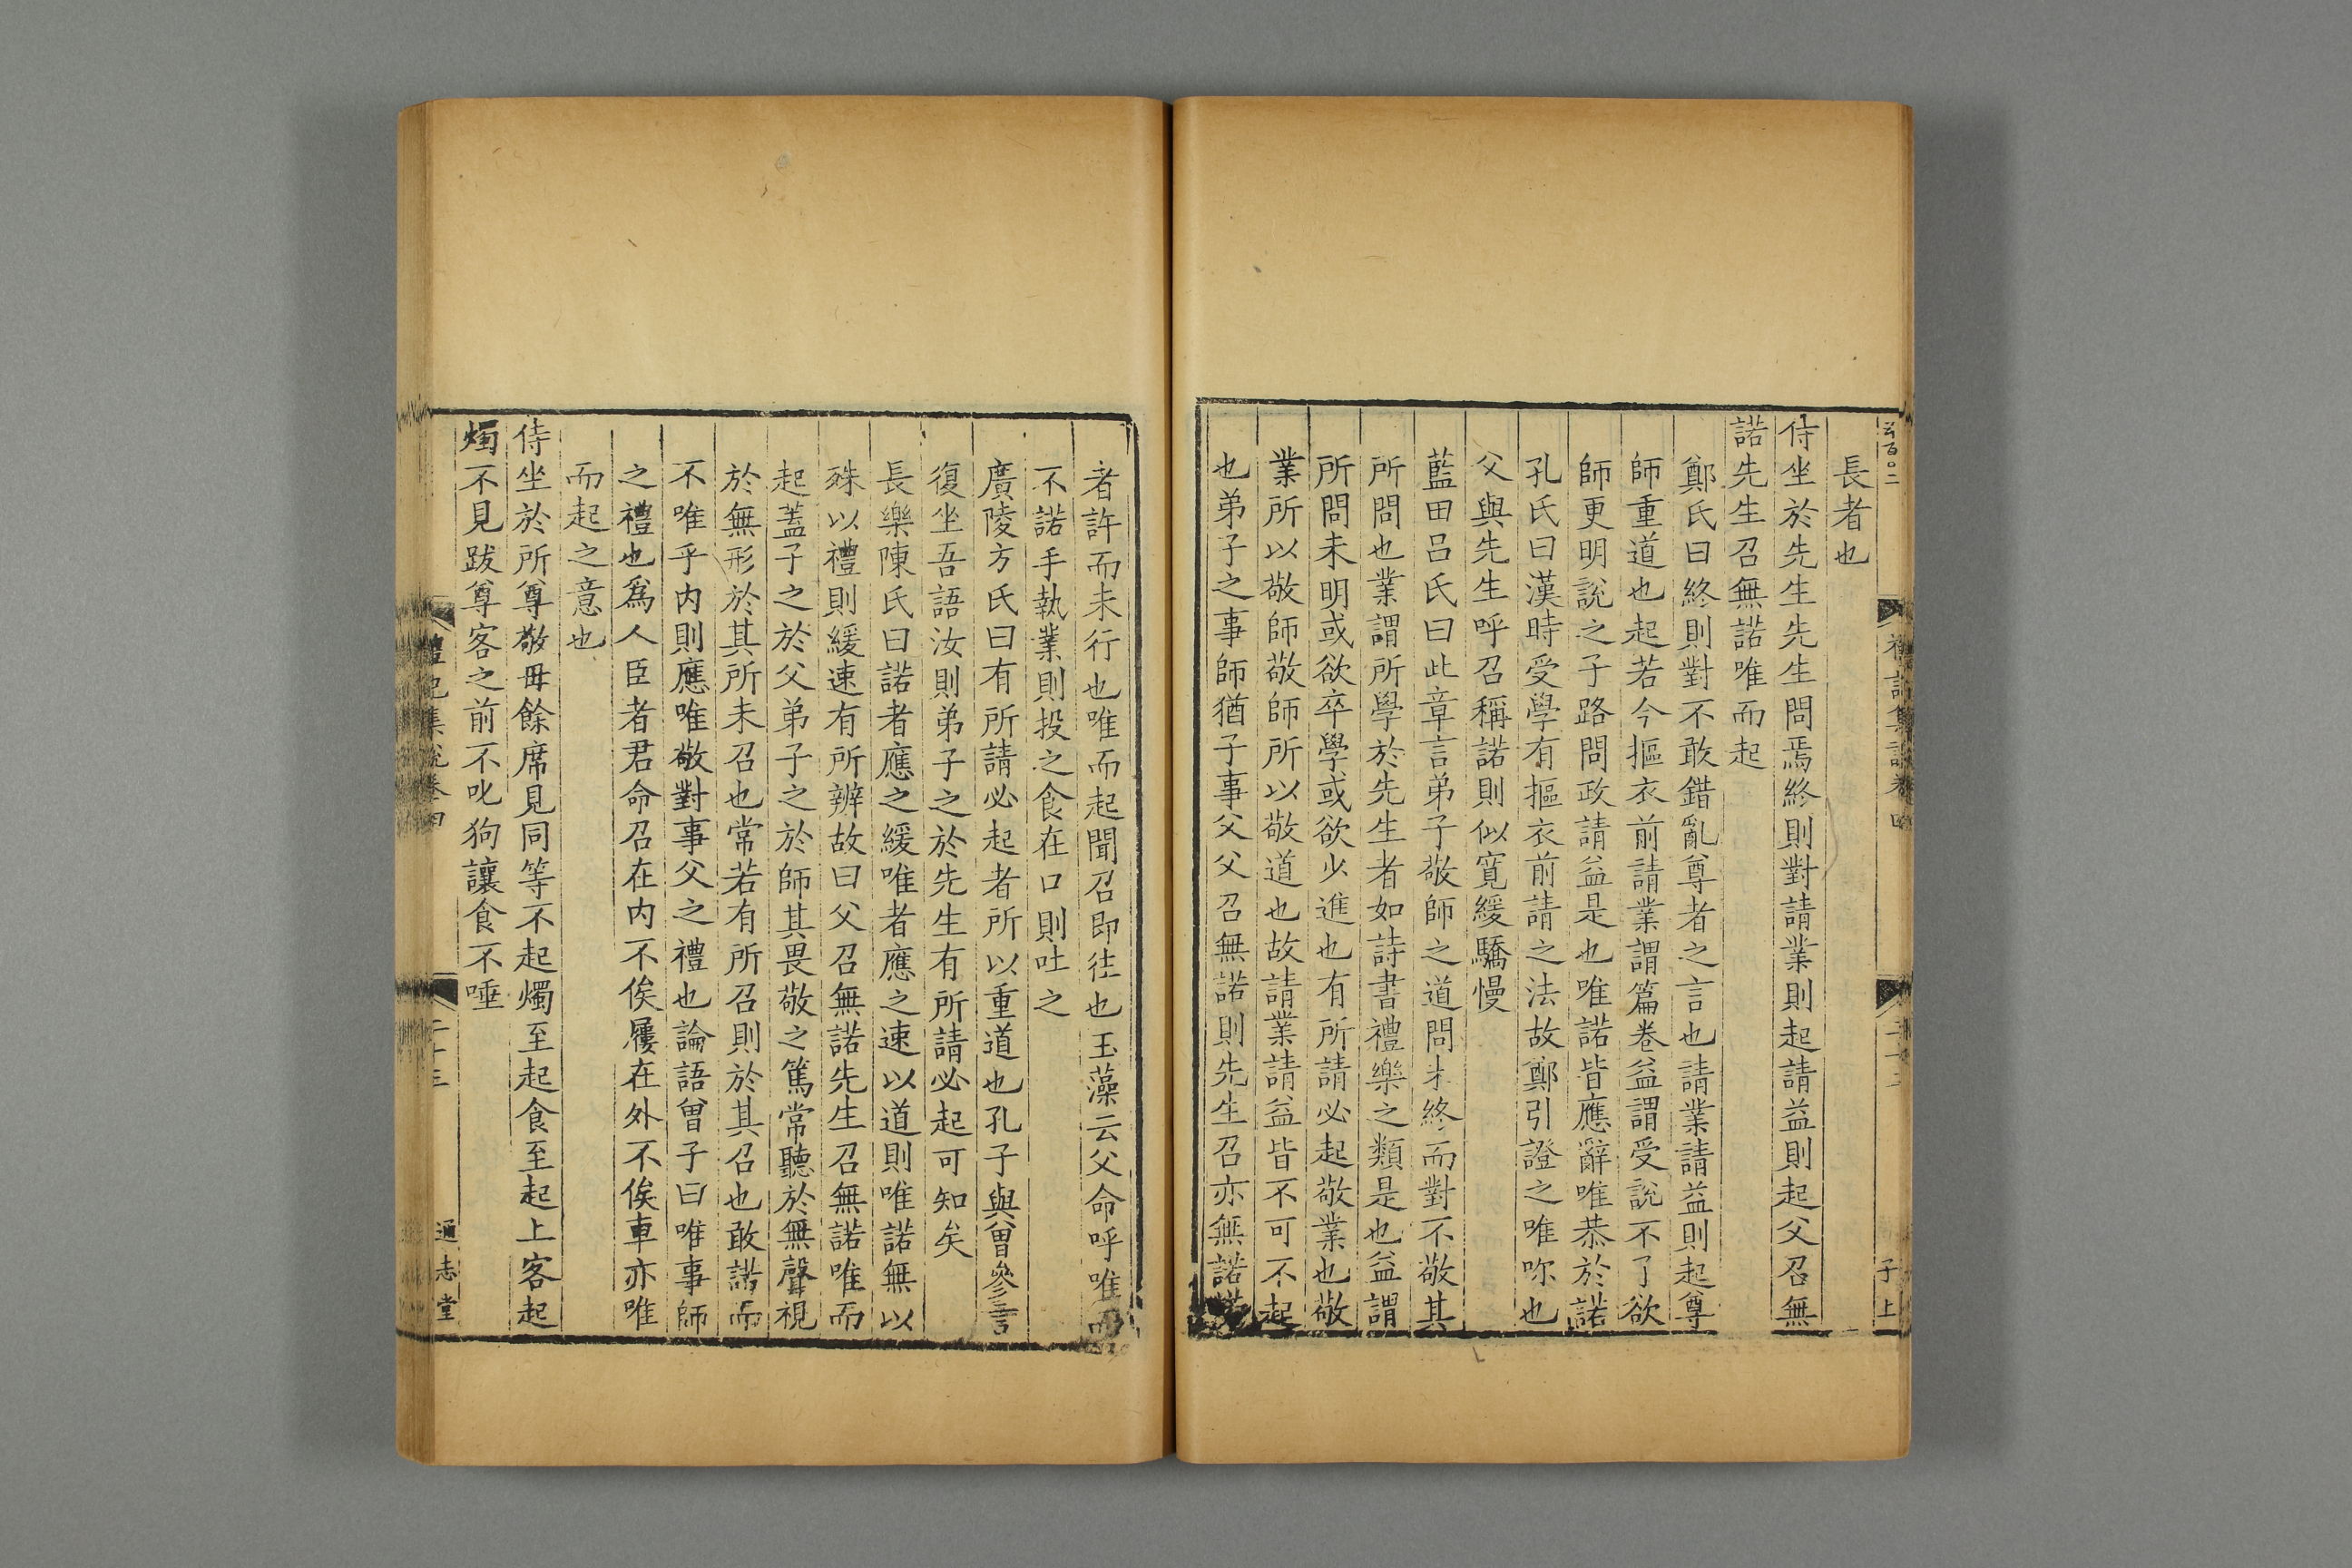 長者也
侍坐於先生先生問焉終則對請業則起請益則起父召無
諾先生召無諾唯而起
鄭氏曰終則對不敢錯亂尊者之言也請業請益則起尊
師重道也起若今摳衣前請業謂篇卷益謂受說不了欲
師更明說之子路問政請益是也唯諾皆應辭唯恭於諾
孔氏曰漢時受學有摳衣前請之法故鄭引證之唯吚也
父與先生呼召稱諾則似寬緩驕慢
藍田呂氏曰此章言弟子敬師之道問未終而對不敬其
所問也業謂所學於先生者如詩書禮樂之類是也益謂
所問未明或欲卒學或欲少進也有所請必起敬業也敬
業所以敬師敬師所以敬道也故請業請益皆不可不起
也弟子之事師猶子事父父召無諾則先生召亦無諾
者許而未行也唯而起聞召即往也玉藻云父命呼唯而
不諾手執業則投之食在口則吐之
廣陵方氏曰有所請必起者所以重道也孔子與曾參言
復坐吾語汝則弟子之於先生有所請必起可知矣
長樂陳氏曰諾者應之緩唯者應之速以道則唯諾無以
殊以禮則緩速有所辨故曰父召無諾先生召無諾唯而
起蓋子之於父弟子之於師其畏敬之篤常聽於無聲視
於無形於其所未召也常若有所召則於其召也敢諾而
不唯乎内則應唯敬對事父之禮也論語曾子曰唯事師
之禮也為人臣者君命召在内不俟屨在外不俟車亦唯
而起之意也
侍坐於所尊敬毋餘席見同等不起燭至起食至起上客起
燭不見跋尊客之前不叱狗讓食不唾
禮記集說卷四
二十三
通志堂
禮記集說卷四
子上